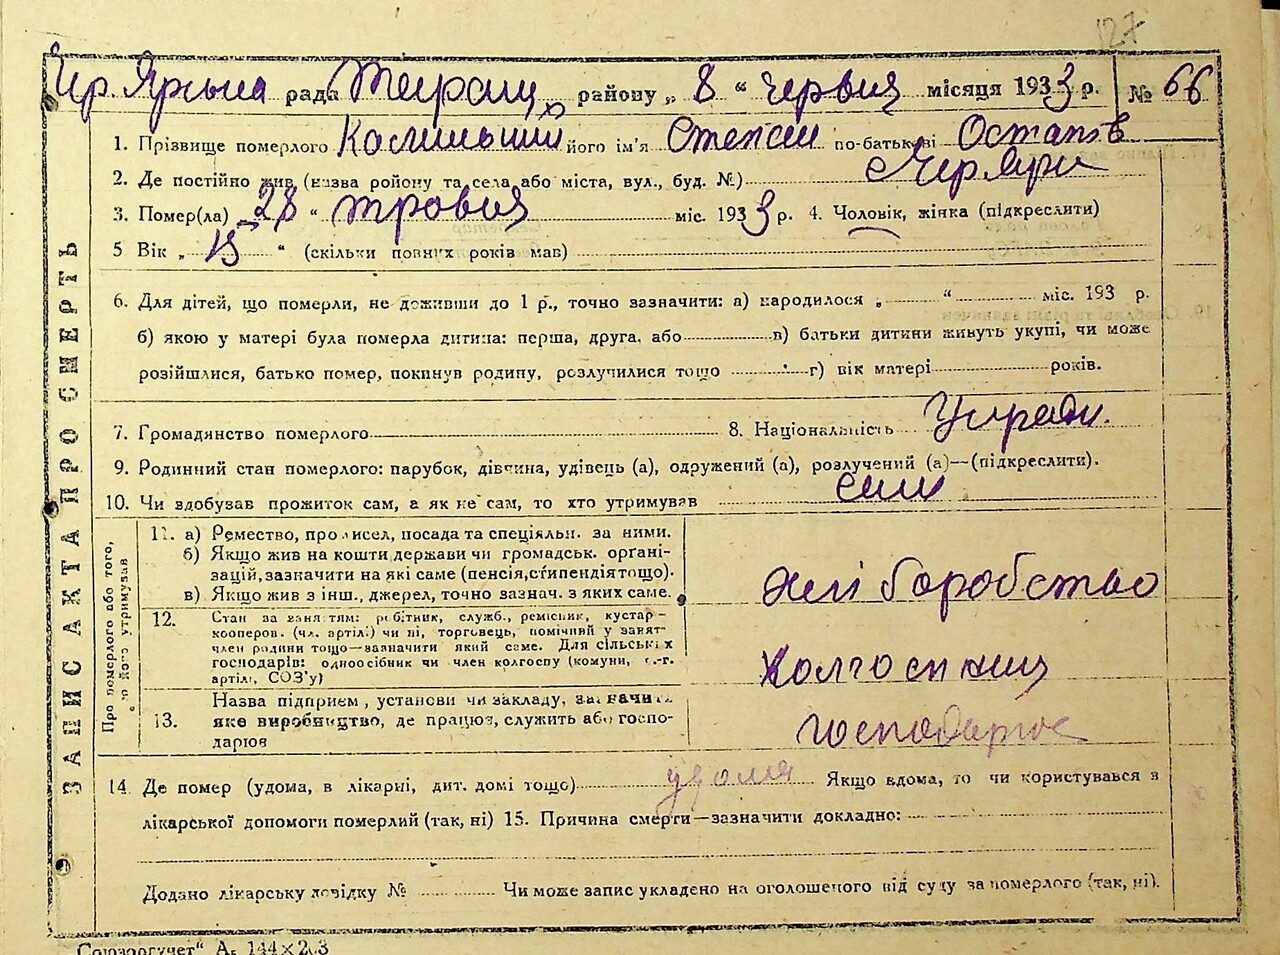 127
Чр. Ярська рада Тетращ. району „ 8 “ червня місяця 1933 р. № 66
1. Прізвище померлого його ім'я Степан по-батькові Остапів
2. Де постійно жив (назва району та села або міста, вул., буд. №) Чер Яри
3. Помер(ла) „28 “ травня міс. 1933 р. 4. Чоловік, жінка (підкреслити)
5 Вік „ “ (скільки повних років мав)
6. Для дітей, що померли, не доживши до 1 р., точно зазначити: а) народилося „ “ міс. 193 р.
б) якою у матері була померла дитина: перша, друга, або в) батьки дитини живуть укупі, чи може
розійшлися, батько помер, покинув родину, розлучилися тощо г) вік матері років.
7. Громадянство померлого 8. Національність
9. Родинний стан померлого: парубок, дівчина, удівець (а), одружений (а), розлучений (а)—(підкреслити).
10. Чи здобував прожиток сам, а як не сам, то хто утримував сам
ЗАПИС АКТА ПРО СМЕРТЬ
Про померлого або того, хто його утримував
11. а) Ремество, промисел, посада та спеціяльн. за ними.
б) Якщо жив на кошти держави чи громадськ. органі-
зацій, зазначити на які саме (пенсія, стипендія тощо).
в) Якщо жив з інш., джерел, точно зазнач. з яких саме.
хліборобство
12. Стан за занятям: робітник, служб., ремісник, кустар-
кооперов. (чл. артілі) чи ні, торговець, помічний у занят.
член родини тощо—зазначити який саме. Для сільських
господарів: одноосібник чи член колгоспу (комуни, с.-г.
артілі, СОЗ'у)
Колгоспник
13. Назва підприєм, установи чи закладу, зазначит.
яке виробництво, де працює, служить або госпо-
дарює
господарює
14. Де помер (удома, в лікарні, дит. домі тощо) удома Якщо вдома, то чи користувався з
лікарської допомоги померлий (так, ні) 15. Причина смерти—зазначити докладно:
Додано лікарську довідку № Чи може запис укладено на оголошеного від суду за померлого (так, ні).
Союзоргучет“ А₅ 144×203